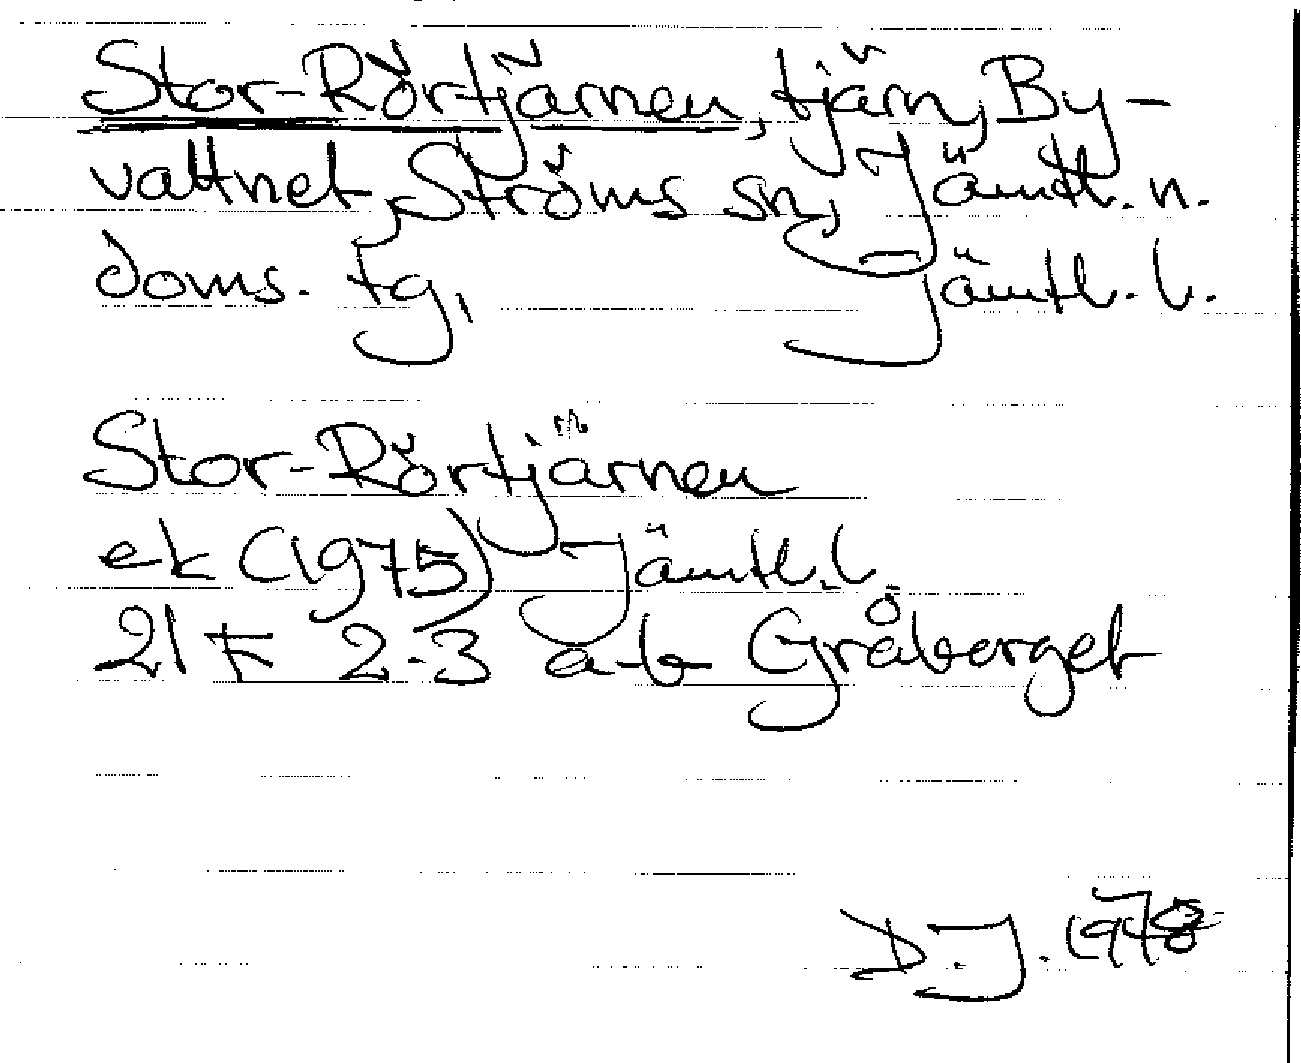 Stor-Rörtjärnen, tjärn, By-
vattnet, Ströms sn, Jämtl. n.
doms. tg, Jämtl. l.
Stor-Rörtjärnen
ek (1975) Jämtl. l.
21 F 2-3 a-b Gråberget
D.J. 1978